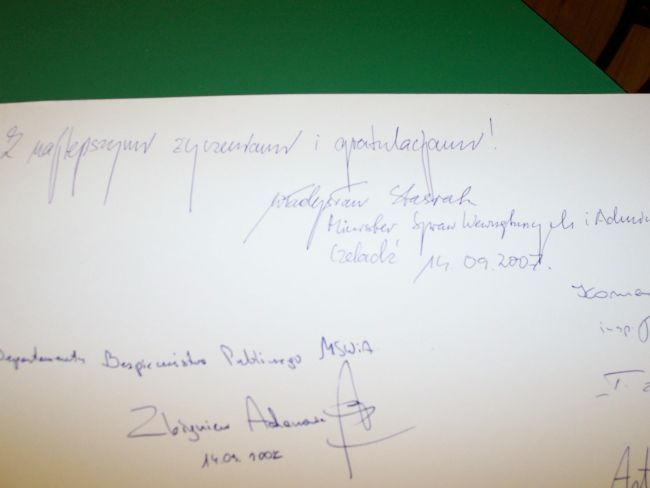 Z najlepszymi życzeniami i gratulacjami!
Władysław Stasiak
Minister Spraw Wewnętrznych i Admini
Czeladź 14.09.2007.
Kome
insp.
Departamentu Bezpieczeństwa Publicznego MSWiA
I. Z
Zbigniew
14.09.2007